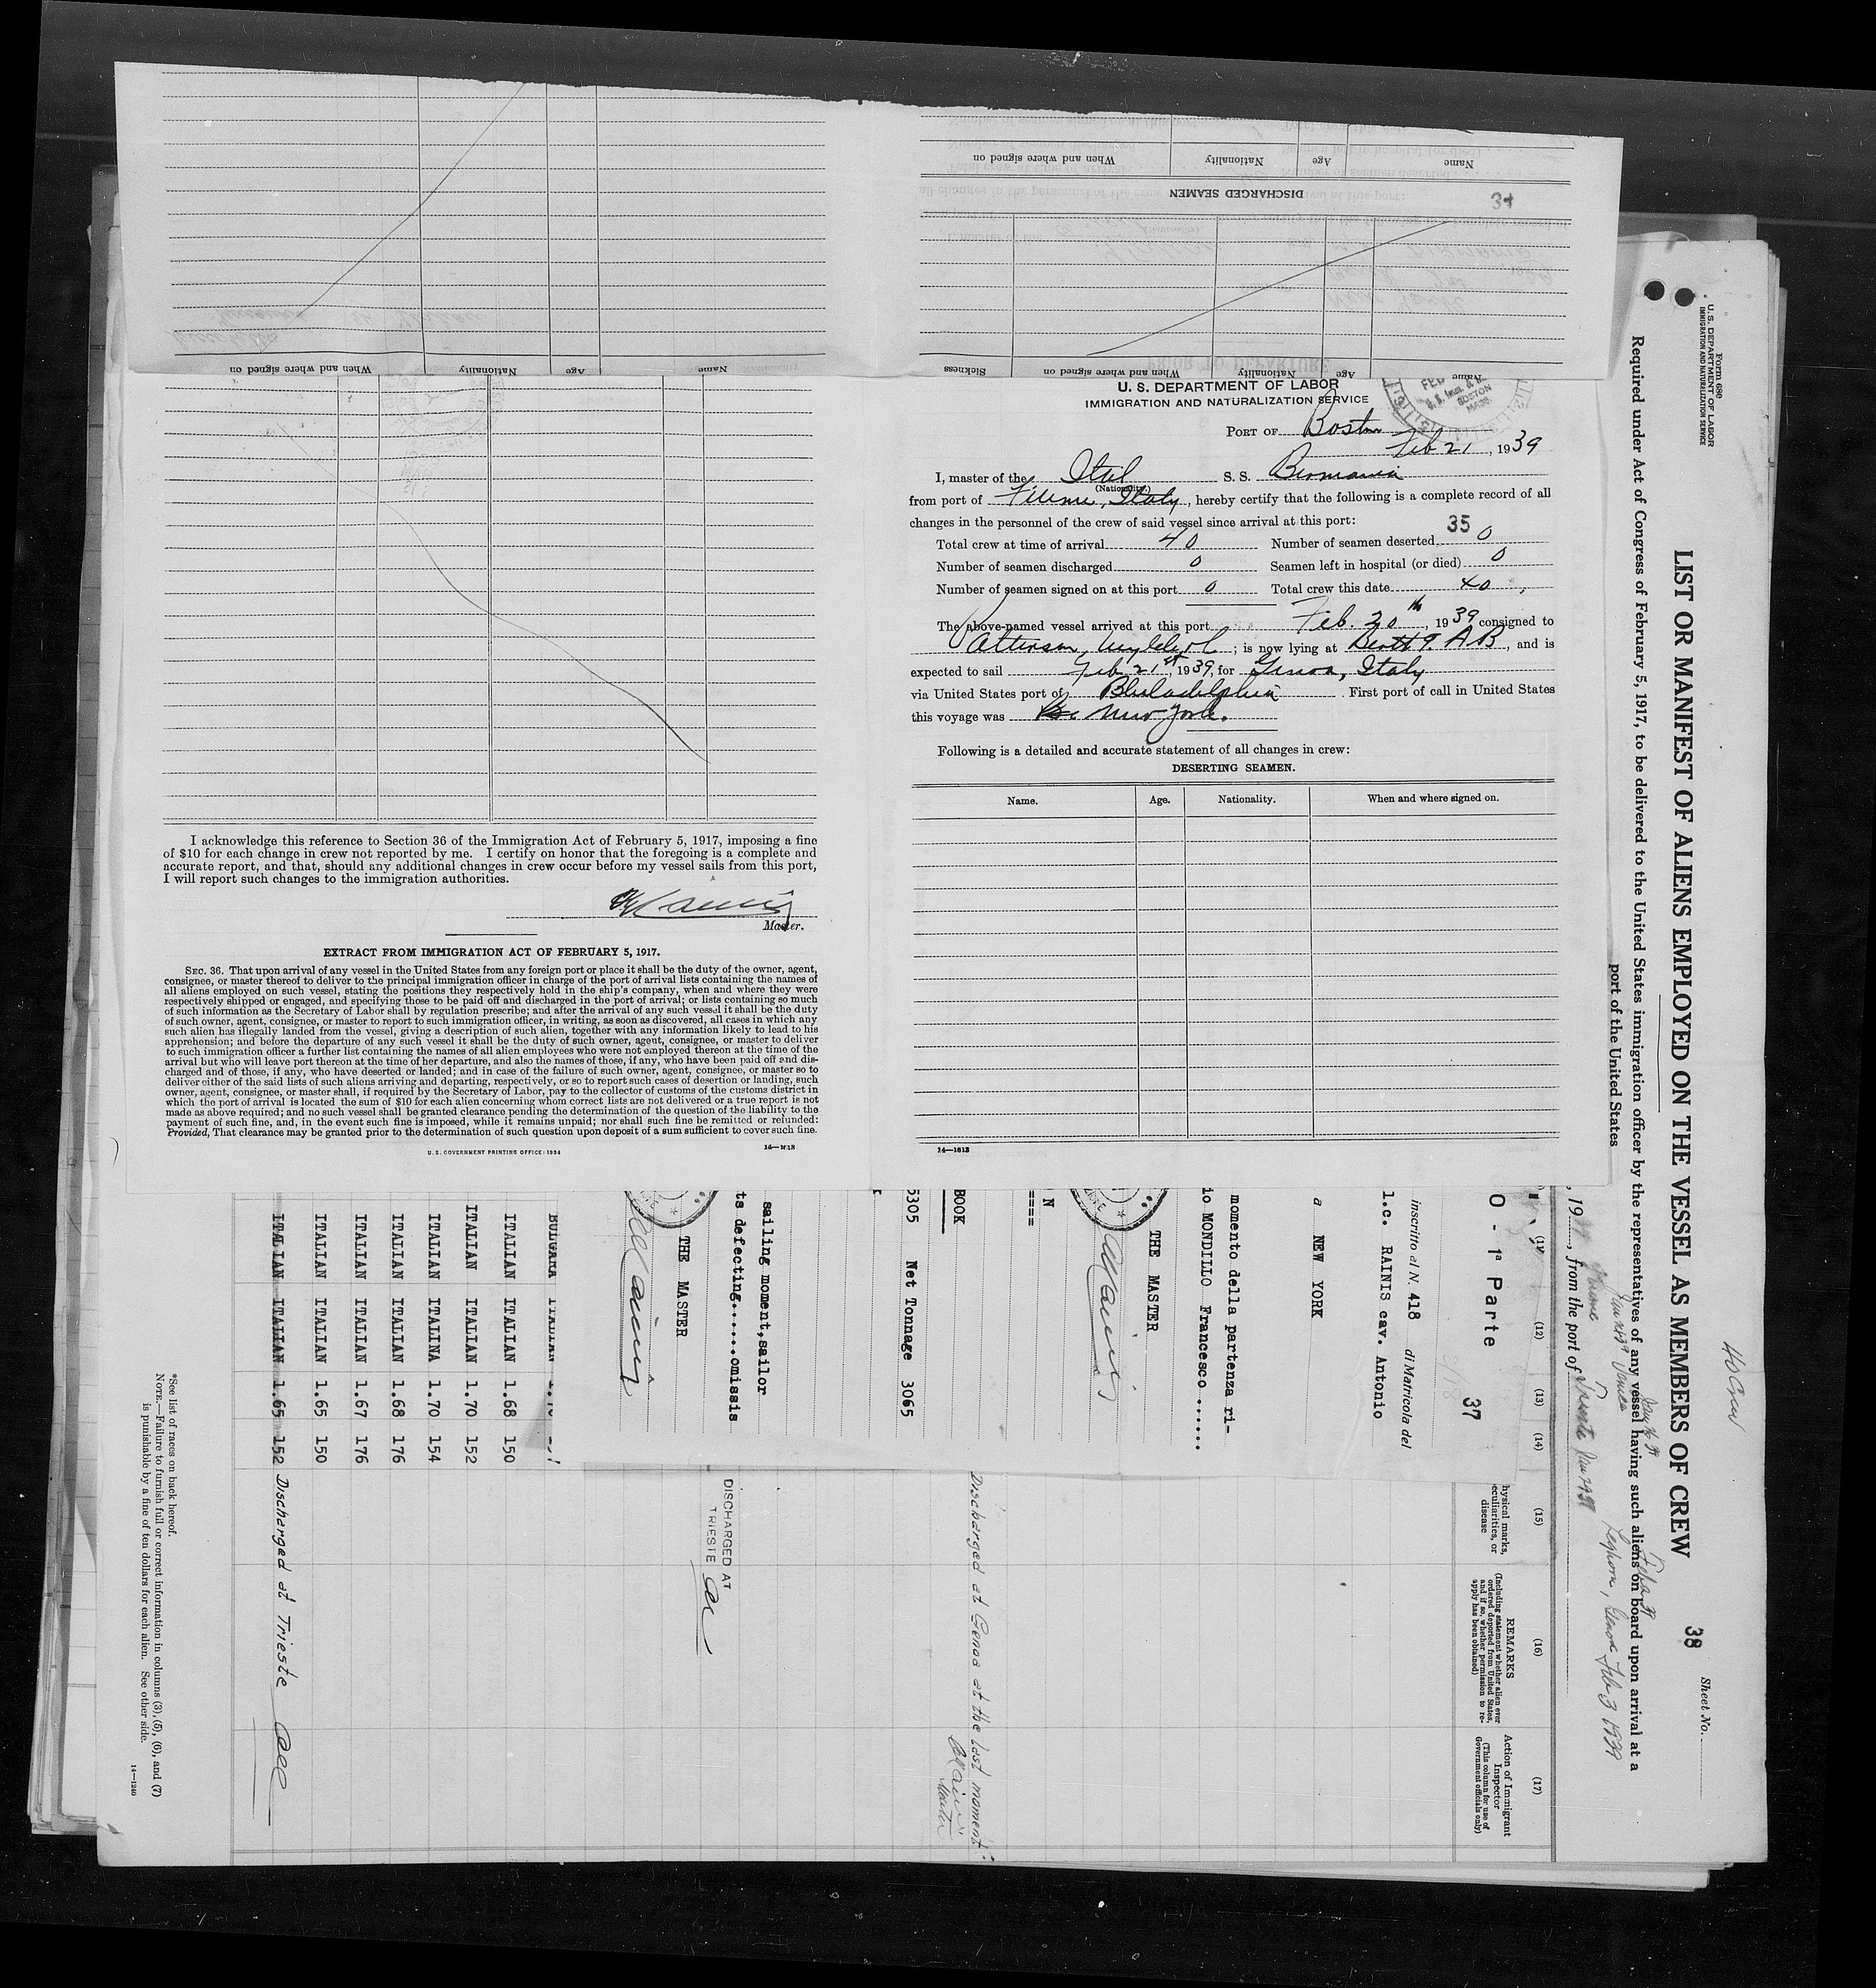 Name
Age
Nationality
When and where signed on
DISCHARGED SEAMEN
34
Name
Age
Nationality
When and where signed on
Sickness
Name
Age
Nationality
When and where signed on
I acknowledge this reference to Section 36 of the Immigration Act of February 5, 1917, imposing a fine
of $10 for each change in crew not reported by me. I certify on honor that the foregoing is a complete and
accurate report, and that, should any additional changes in crew occur before my vessel sails from this port,
I will report such changes to the immigration authorities.
Master.
EXTRACT FROM IMMIGRATION ACT OF FEBRUARY 5, 1917.
SEC. 36. That upon arrival of any vessel in the United States from any foreign port or place it shall be the duty of the owner, agent,
consignee, or master thereof to deliver to the principal immigration officer in charge of the port of arrival lists containing the names of
all aliens employed on such vessel, stating the positions they respectively hold in the ship's company, when and where they were
respectively shipped or engaged, and specifying those to be paid off and discharged in the port of arrival; or lists containing so much
of such information as the Secretary of Labor shall by regulation prescribe; and after the arrival of any such vessel it shall be the duty
of such owner, agent, consignee, or master to report to such immigration officer, in writing, as soon as discovered, all cases in which any
such alien has illegally landed from the vessel, giving a description of such alien, together with any information likely to lead to his
apprehension; and before the departure of any such vessel it shall be the duty of such owner, agent, consignee, or master to deliver
to such immigration officer a further list containing the names of all alien employees who were not employed thereon at the time of the
arrival but who will leave port thereon at the time of her departure, and also the names of those, if any, who have been paid off and dis-
charged and of those, if any, who have deserted or landed; and in case of the failure of such owner, agent, consignee, or master so to
deliver either of the said lists of such aliens arriving and departing, respectively, or so to report such cases of desertion or landing, such
owner, agent, consignee, or master shall, if required by the Secretary of Labor, pay to the collector of customs of the customs district in
which the port of arrival is located the sum of $10 for each alien concerning whom correct lists are not delivered or a true report is not
made as above required; and no such vessel shall be granted clearance pending the determination of the question of the liability to the
payment of such fine, and, in the event such fine is imposed, while it remains unpaid; nor shall such fine be remitted or refunded:
Provided, That clearance may be granted prior to the determination of such question upon deposit of a sum sufficient to cover such fine.
U.S. GOVERNMENT PRINTING OFFICE: 1934
U. S. DEPARTMENT OF LABOR
IMMIGRATION AND NATURALIZATION SERVICE
BOSTON
MASS.
PORT OF Boston
Feb 21, 1939
I, master of the Ital S. S. Birmania
(Nationality.)
from port of Fiume, Italy, hereby certify that the following is a complete record of all
changes in the personnel of the crew of said vessel since arrival at this port:
35
Total crew at time of arrival 40 Number of seamen deserted 0
Number of seamen discharged 0 Seamen left in hospital (or died) 0
Number of seamen signed on at this port 0 Total crew this date 40
The above-named vessel arrived at this port Feb. 20th, 1939 consigned to
Patterson, Wylde ; is now lying at Berth 9. A B, and is
expected to sail Feb 21st, 1939, for Genoa, Italy
via United States port of Philadelphia. First port of call in United States
this voyage was New York.
Following is a detailed and accurate statement of all changes in crew:
DESERTING SEAMEN.
Name. Age. Nationality. When and where signed on.
14—1613
Form 680
U. S. DEPARTMENT OF LABOR
IMMIGRATION AND NATURALIZATION SERVICE
40 Crew
Sheet No.
38
LIST OR MANIFEST OF ALIENS EMPLOYED ON THE VESSEL AS MEMBERS OF CREW
Required under Act of Congress of February 5, 1917, to be delivered to the United States immigration officer by the representatives of any vessel having such aliens on board upon arrival at a
port of the United States
, 19, from the port of Trieste
Fiume
Venice
Leghorn, Genoa Feb 3 1939
(12) (13) (14) (15) (16) (17)
hysical marks,
eculiarities, or
disease
REMARKS
(Including statement whether alien ever
ordered deported from United States,
and if so, whether permission to re-
apply has been obtained)
Action of Immigrant
Inspector
(This column for use of
Government officials only)
O - 1ª Parte 37
inscritto al N. 418 di Matricola del
l.c. RAINIS cav. Antonio
a NEW YORK
momento della partenza ri-
io MONDILLO Francesco ......
THE MASTER
N
====
BOOK
5305 Net Tonnage 3065
sailing moment,sailor
ts defecting......omissis
THE MASTER
Discharged at Genoa at the last moment
Master
DISCHARGED AT
TRIESTE
ITALIAN ITALIAN 1.68 150
ITALIAN ITALIAN 1.70 152
ITALIAN ITALINA 1.70 154
ITALIAN ITALIAN 1.68 176
ITALIAN ITALIAN 1.67 176
ITALIAN ITALIAN 1.65 150
ITALIAN ITALIAN 1.65 152 Discharged at Trieste
*See list of races on back hereof.
NOTE.—Failure to furnish full or correct information in columns (3), (5), (6), and (7)
is punishable by a fine of ten dollars for each alien. See other side.
14—1240